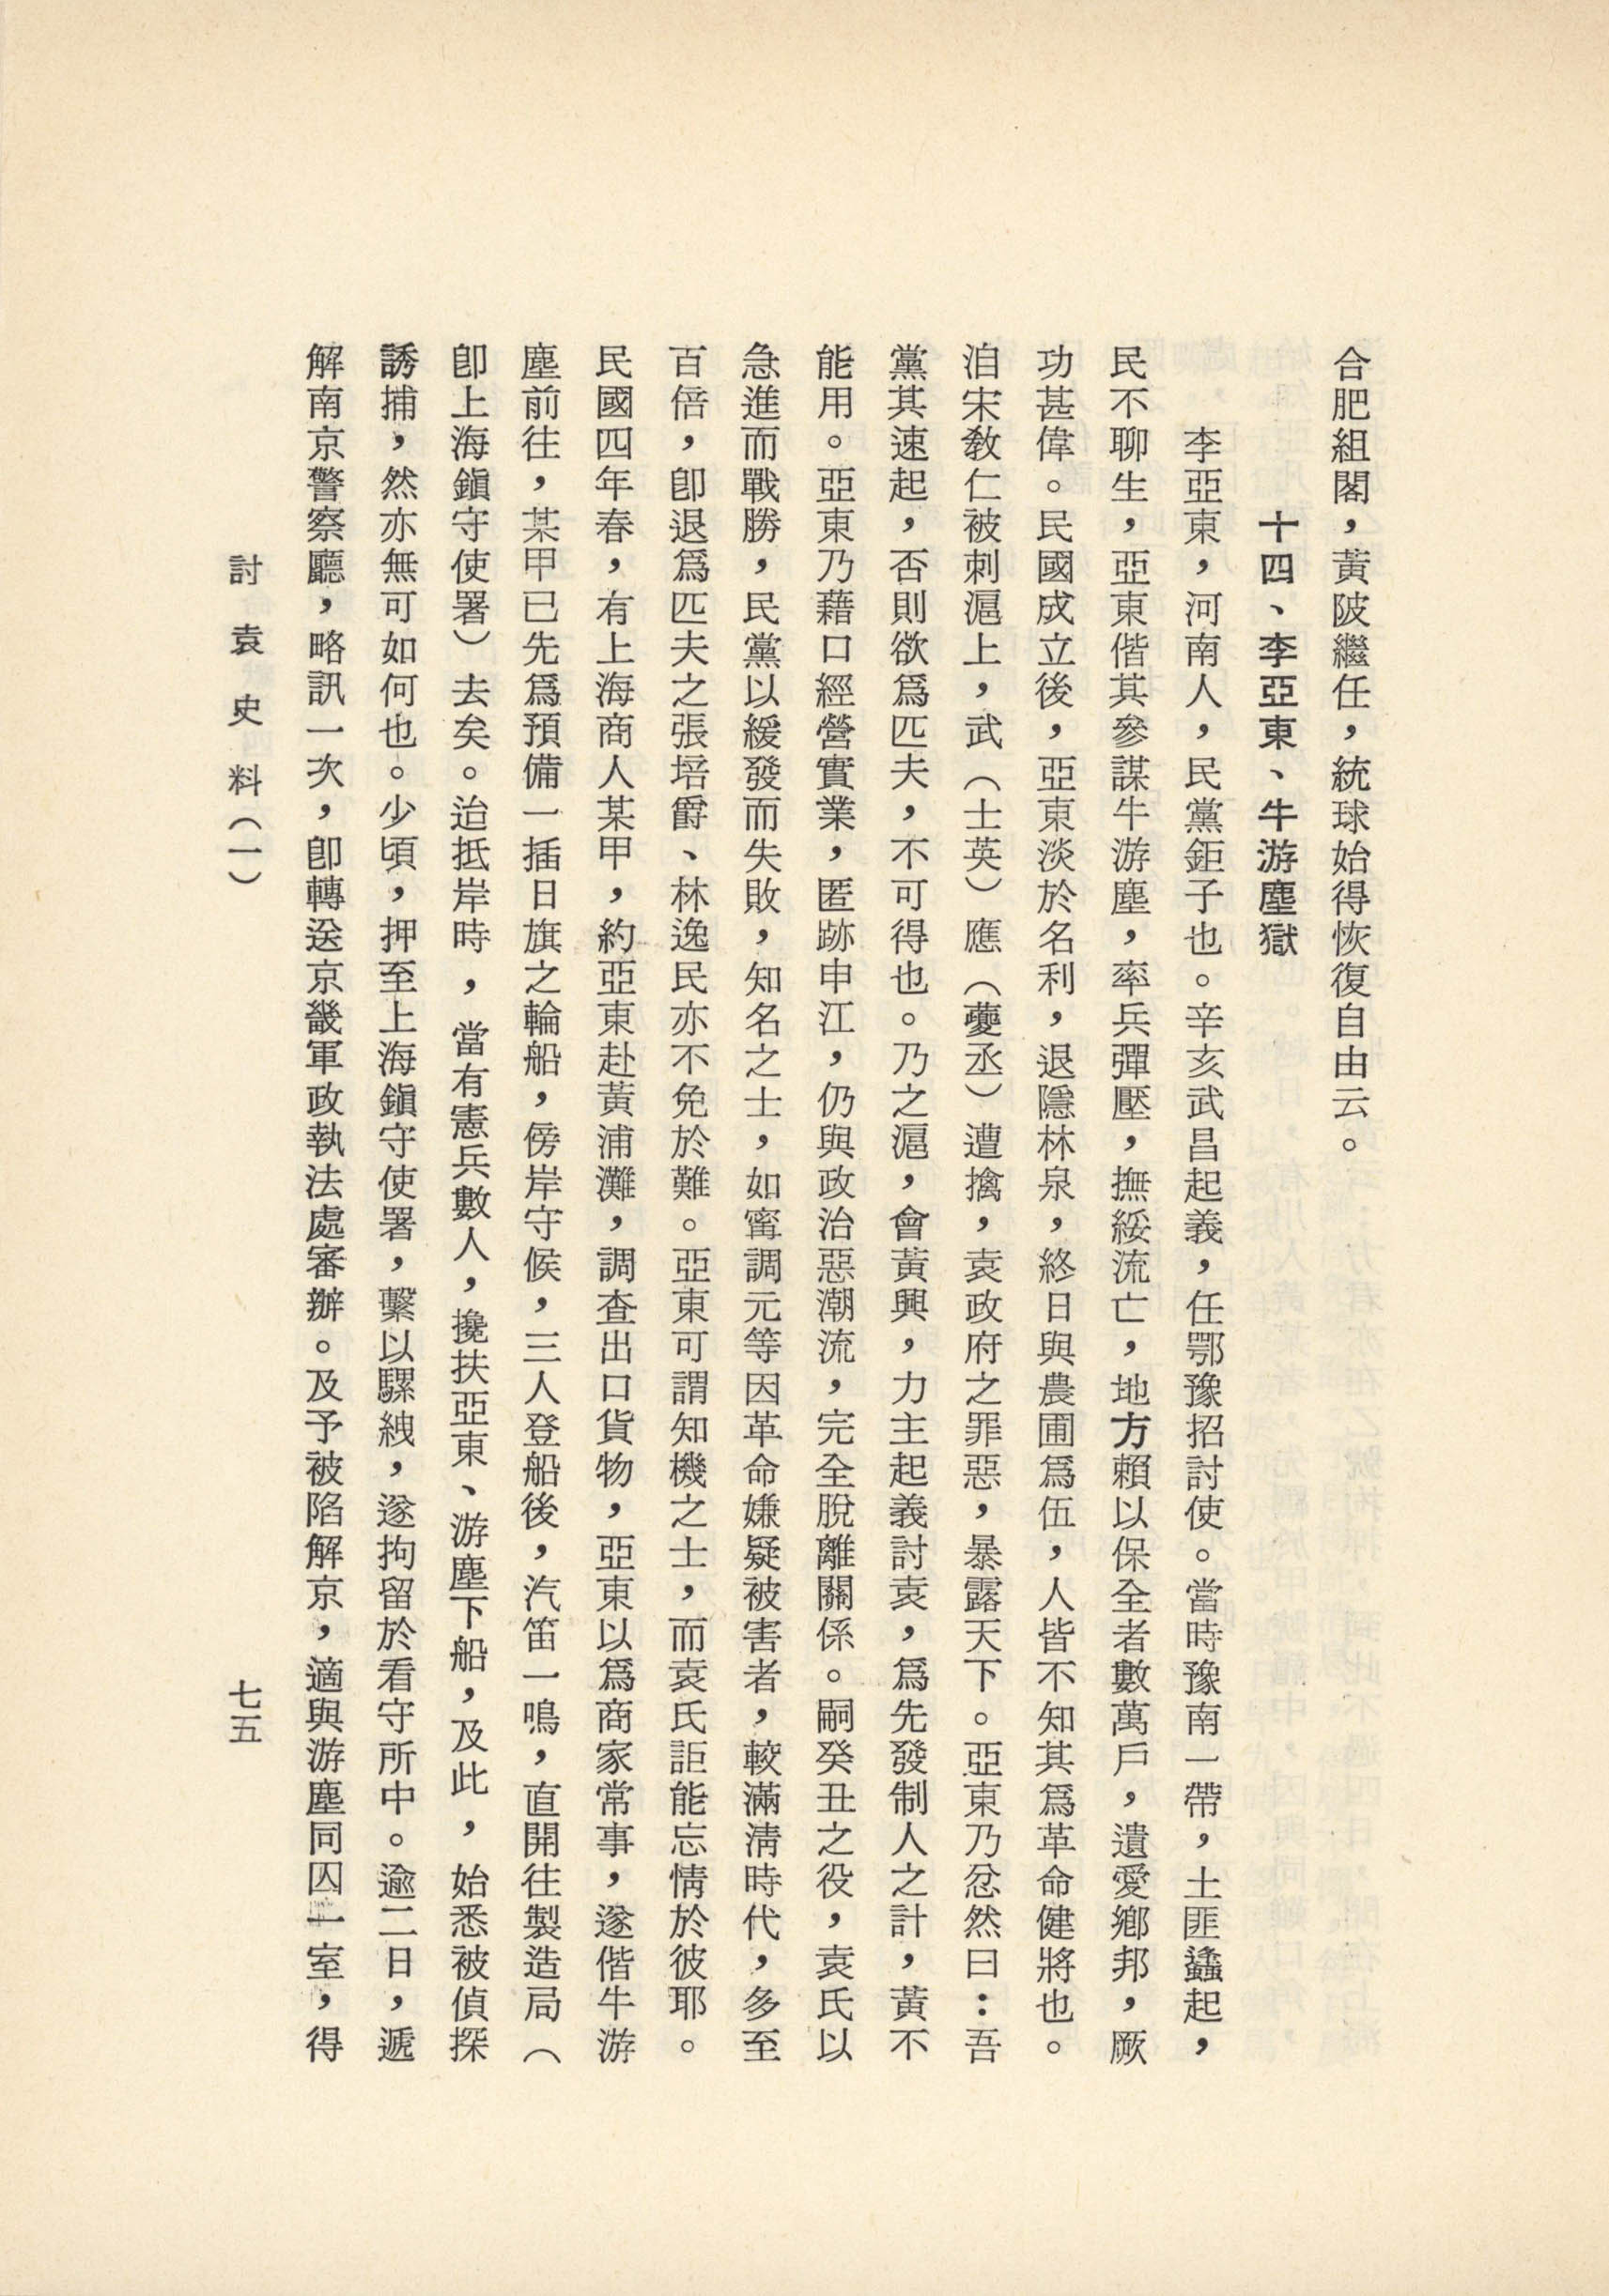 合肥組閣，黃陂繼任，統球始得恢復自由云。
十四、李亞東、牛游塵獄
李亞東，河南人，民黨鉅子也。辛亥武昌起義，任鄂豫招討使。當時豫南一帶，土匪蠭起，
民不聊生，亞東偕其參謀牛游塵，率兵彈壓，撫綏流亡，地方賴以保全者數萬戶，遺愛鄉邦，厥
功甚偉。民國成立後，亞東淡於名利，退隱林泉，終日與農圃爲伍，人皆不知其爲革命健將也。
洎宋敎仁被刺滬上，武（士英）應（夔丞）遭擒，袁政府之罪惡，暴露天下。亞東乃忿然曰：吾
黨其速起，否則欲爲匹夫，不可得也。乃之滬，會黃興，力主起義討袁，爲先發制人之計，黃不
能用。亞東乃藉口經營實業，匿跡申江，仍與政治惡潮流，完全脫離關係。嗣癸丑之役，袁氏以
急進而戰勝，民黨以緩發而失敗，知名之士，如甯調元等因革命嫌疑被害者，較滿淸時代，多至
百倍，卽退爲匹夫之張培爵、林逸民亦不免於難。亞東可謂知機之士，而袁氏詎能忘情於彼耶。
民國四年春，有上海商人某甲，約亞東赴黃浦灘，調查出口貨物，亞東以爲商家常事，遂偕牛游
塵前往，某甲已先爲預備一插日旗之輪船，傍岸守候，三人登船後，汽笛一鳴，直開往製造局（
卽上海鎭守使署）去矣。迨抵岸時，當有憲兵數人，攙扶亞東、游塵下船，及此，始悉被偵探
誘捕，然亦無可如何也。少頃，押至上海鎭守使署，繫以騾絏，遂拘留於看守所中。逾二日，遞
解南京警察廳，略訊一次，卽轉送京畿軍政執法處審辦。及予被陷解京，適與游塵同囚一室，得
討袁史料（一）
七五